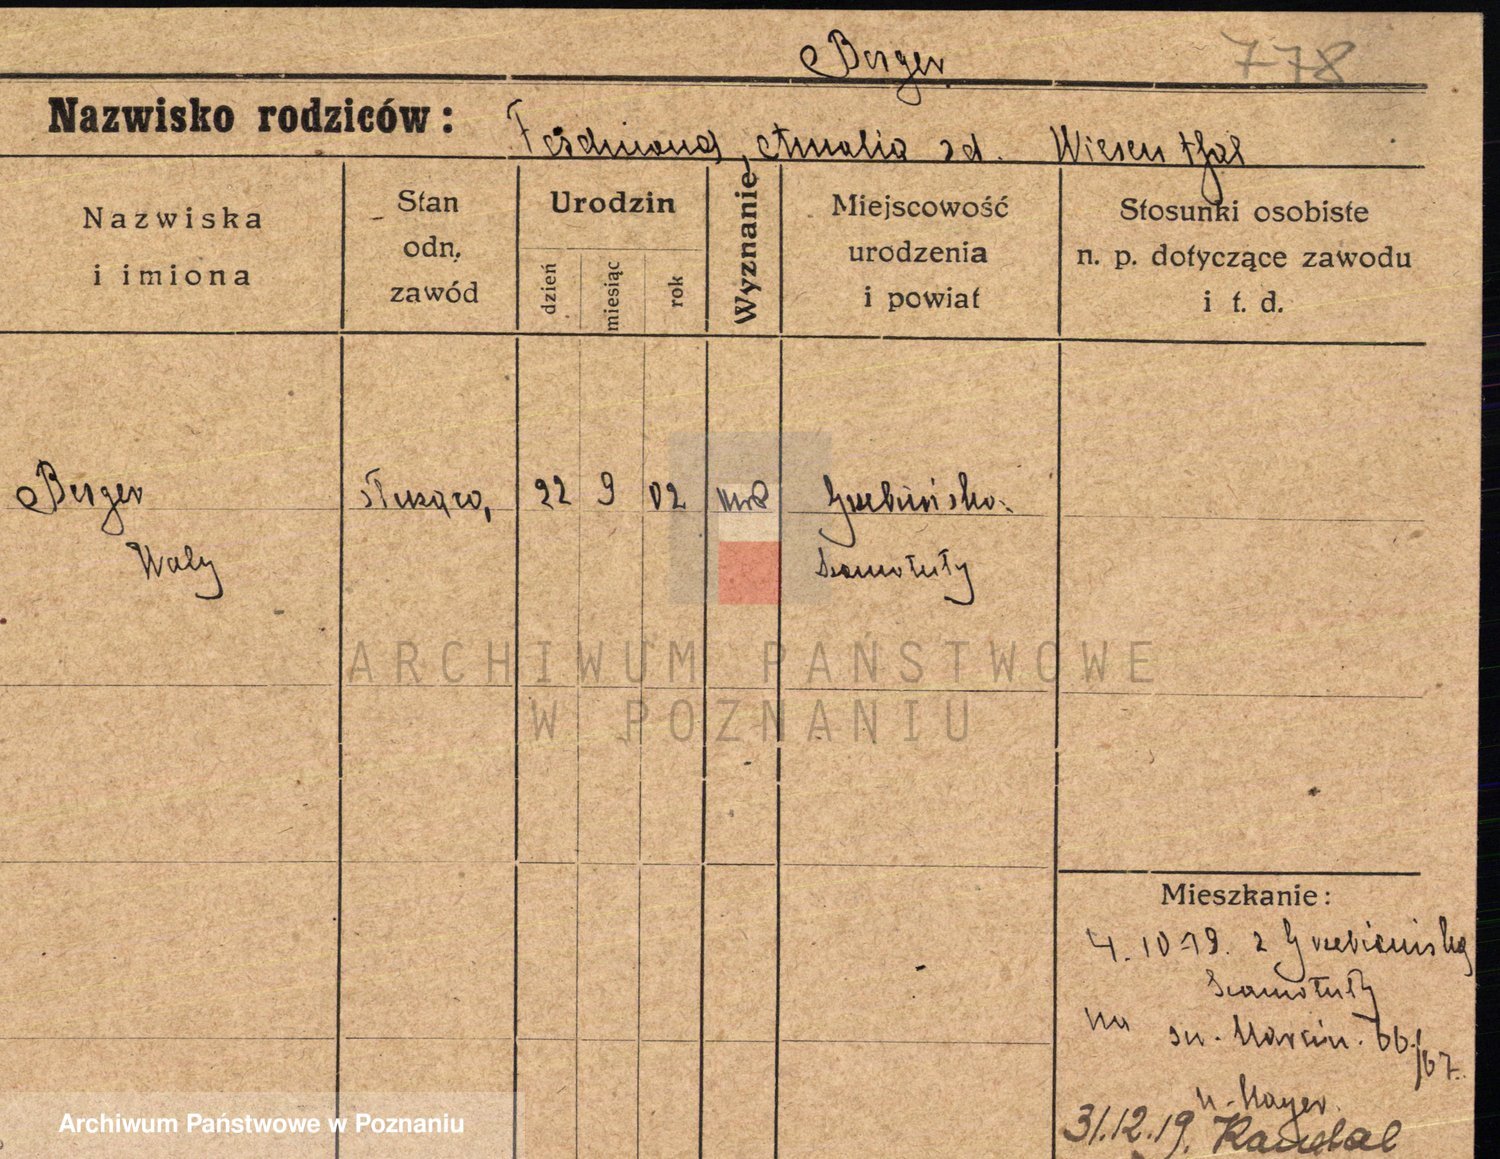 Berger 778
Nazwisko rodziców: Ferdinand, Amalia zd. Wiesenthal
Nazwiska
i imiona
Stan
odn.
zawód
Urodzin
dzień
miesiąc
rok
Wyznanie
Miejscowość
urodzenia
i powiat
Stosunki osobiste
n. p. dotyczące zawodu
i t. d.
Berger służąca, 22 9 02 Grzebienisko.
Waly Szamotuły
ARCHIWUM PAŃSTWOWE
W POZNANIU
Mieszkanie:
4. 10 19. z Grzebieniska
Szamotuły
na św. Marcin. 66/67.
u. Mayer.
31.12.19.
Archiwum Państwowe w Poznaniu